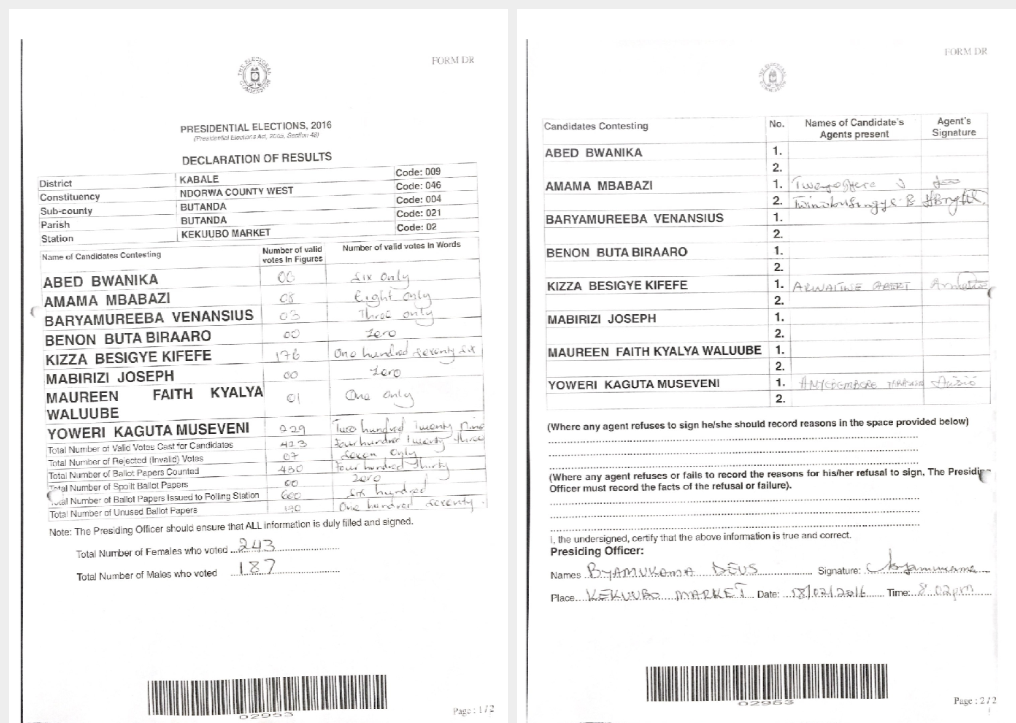 FORM DR
THE ELECTORAL COMMISSION
PRESIDENTIAL ELECTIONS, 2016
(Presidential Elections Act, 2005, Section 48)
DECLARATION OF RESULTS
District KABALE Code: 009
Constituency NDORWA COUNTY WEST Code: 046
Sub-county BUTANDA Code: 004
Parish BUTANDA Code: 021
Station KEKUUBO MARKET Code: 02
Name of Candidates Contesting Number of valid votes in Figures Number of valid votes in Words
ABED BWANIKA 06 Six only
AMAMA MBABAZI 08 Eight only
BARYAMUREEBA VENANSIUS 03 Three only
BENON BUTA BIRAARO 00 Zero
KIZZA BESIGYE KIFEFE 176 One hundred seventy six
MABIRIZI JOSEPH 00 Zero
MAUREEN FAITH KYALYA WALUUBE 01 One only
YOWERI KAGUTA MUSEVENI 229 Two hundred Twenty Nine
Total Number of Valid Votes Cast for Candidates 423 Four hundred Twenty three
Total Number of Rejected (Invalid) Votes 07 Seven Only
Total Number of Ballot Papers Counted 430 Four hundred thirty
Total Number of Spoilt Ballot Papers 00 Zero
Total Number of Ballot Papers Issued to Polling Station 600 Six hundred
Total Number of Unused Ballot Papers 170 One hundred seventy
Note: The Presiding Officer should ensure that ALL information is duly filled and signed.
Total Number of Females who voted 243
Total Number of Males who voted 187
02953
Page : 1/2
FORM DR
Candidates Contesting No. Names of Candidate's Agents present Agent's Signature
ABED BWANIKA 1.
2.
AMAMA MBABAZI 1.
2.
BARYAMUREEBA VENANSIUS 1.
2.
BENON BUTA BIRAARO 1.
2.
KIZZA BESIGYE KIFEFE 1.
2.
MABIRIZI JOSEPH 1.
2.
MAUREEN FAITH KYALYA WALUUBE 1.
2.
YOWERI KAGUTA MUSEVENI 1.
2.
(Where any agent refuses to sign he/she should record reasons in the space provided below)
(Where any agent refuses or fails to record the reasons for his/her refusal to sign, The Presiding
Officer must record the facts of the refusal or failure).
I, the undersigned, certify that the above information is true and correct.
Presiding Officer:
Names BYAMUKAMA DEUS Signature:
Place KEKUUBO MARKET Date: 18/02/2016 Time: 8:02pm
02953
Page : 2/2